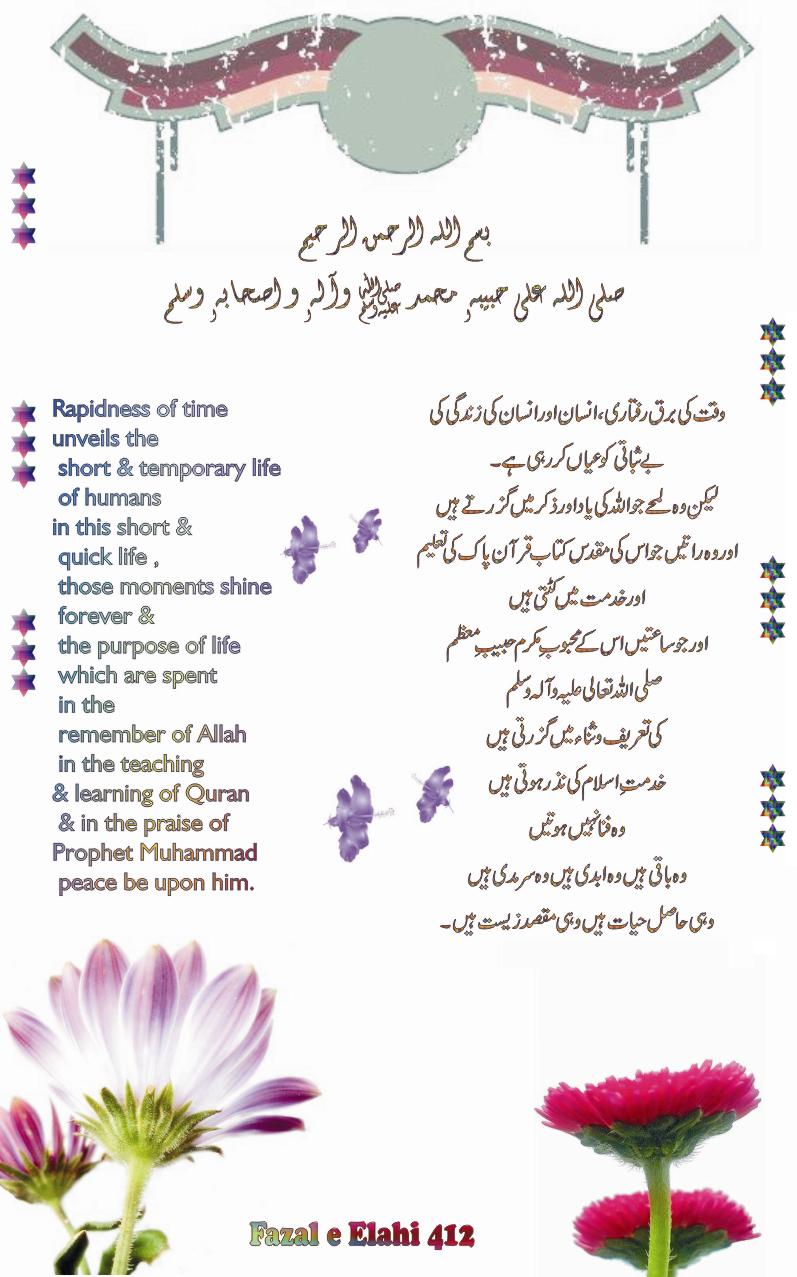 بسم اللہ الرحمن الرحیم
صلی اللہ علی حبیبہ محمد ﷺ وآلہ و اصحابہ وسلم
Rapidness of time
unveils the
short & temporary life
of humans
in this short &
quick life ,
those moments shine
forever &
the purpose of life
which are spent
in the
remember of Allah
in the teaching
& learning of Quran
& in the praise of
Prophet Muhammad
peace be upon him.
وقت کی برق رفتاری، انسان اور انسان کی زندگی کی
بے ثباتی کو عیاں کر رہی ہے۔
لیکن وہ لمحے جو اللہ کی یاد اور ذکر میں گزرتے ہیں
اور وہ راتیں جو اس کی مقدس کتاب قرآن پاک کی تعلیم
اور خدمت میں کٹتی ہیں
اور جو ساعتیں اس کے محبوبِ مکرم حبیبِ معظم
صلی اللہ تعالی علیہ وآلہ وسلم
کی تعریف و ثناء میں گزرتی ہیں
خدمتِ اسلام کی نذر ہوتی ہیں
وہ فنا نہیں ہوتیں
وہ باقی ہیں وہ ابدی ہیں وہ سرمدی ہیں
وہی حاصل حیات ہیں وہی مقصد زیست ہیں۔
Fazal e Elahi 412